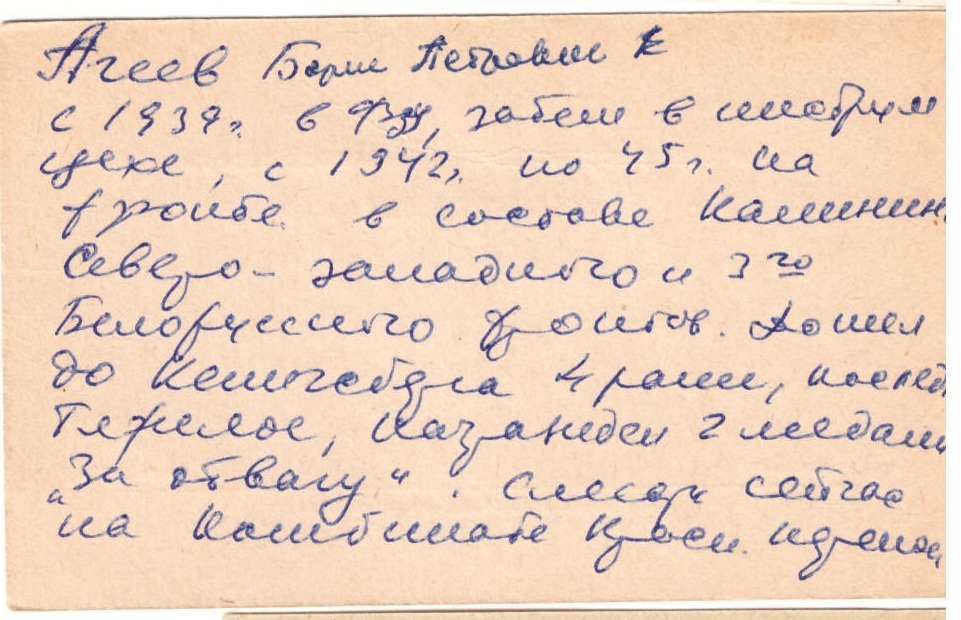 Агеев Борис Петрович
с 1939г. в ФЗУ, затем в
цехе, с 1942г. по 45г. на
фронте в составе Калинин
Северо-западного и 3го
Белорусского фронтов. Дошел
до Кенигсберга 4 ранен, послед
тяжелое, награжден 2 медалям
„За отвагу“. Слесарь сейчас
на комбинате Красн.